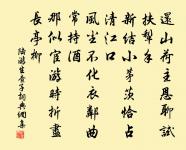 還山荷主恩聊試
扶犁手
新結小茅茨恰占
清江口
風塵不化衣鄰曲
常持酒
那似宦游時折盡
長亭柳
陸游生查子詞典網集